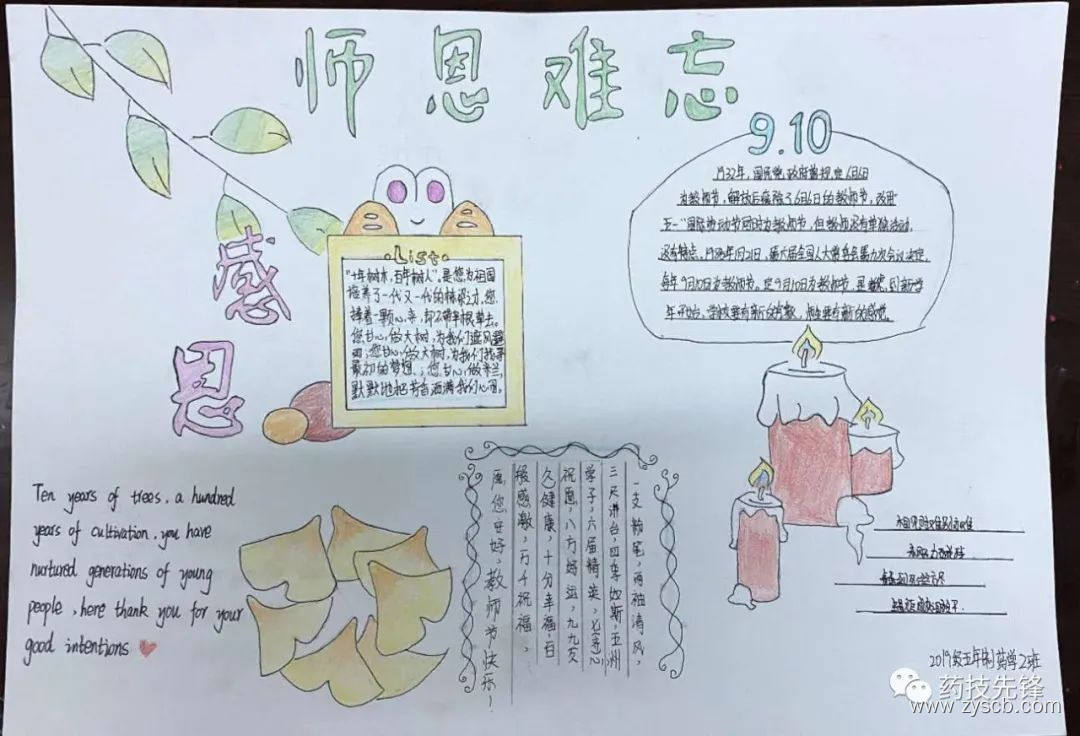 师恩难忘
9.10
1932年，国民党政府曾规定6月6日
为教师节，解放后废除了6月6日的教师节，改用
五一"国际劳动节同时为教师节，但教师没有单独活动，
没有特点，1985年1月21日，第六届全国人大常委会第九次会议决定，
每年9月10日为教师节。定9月10日为教师节，是
年开始，学校要有新的
感
恩
List
"十年树木，百年树人"，是您为祖国
培养了一代又一代的栋梁之才，您
捧着一颗心来，却不带半根草去。
您甘心做大树，为我们遮风避
雨；您甘心做大树，为我们找寻
最初的梦想；您甘心做米兰，
默默地把芳香洒满我们心里。
Ten years of trees, a hundred
years of cultivation, you have
nurtured generations of young
people, here thank you for your
good intentions
一支粉笔，两袖清风，
三尺讲台，四季如斯，五洲
学子，六届精英，七子心
祝愿，八方好运，九九友
久健康，十分幸福，百
般感激，万千祝福，
愿您安好，教师节快乐！
2019级五年制药学2班
药技先锋
www.zyscb.com